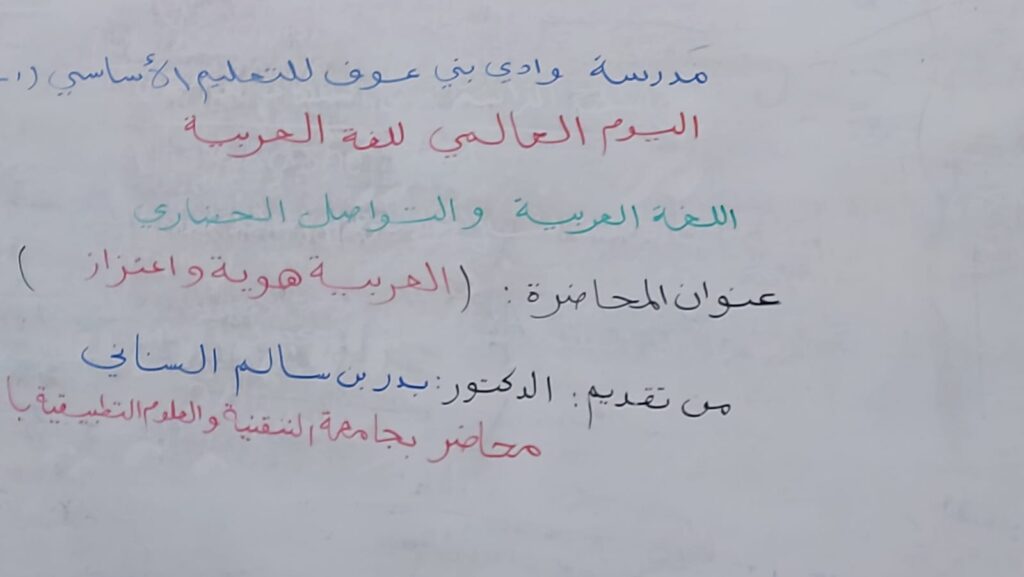 مدرسة وادي بني عوف للتعليم الأساسي (١-
اليوم العالمي للغة العربية
اللغة العربية والتواصل الحضاري
عنوان المحاضرة: (العربية هوية واعتزاز)
من تقديم: الدكتور: بدر بن سالم السناني
محاضر بجامعة التقنية والعلوم التطبيقية با